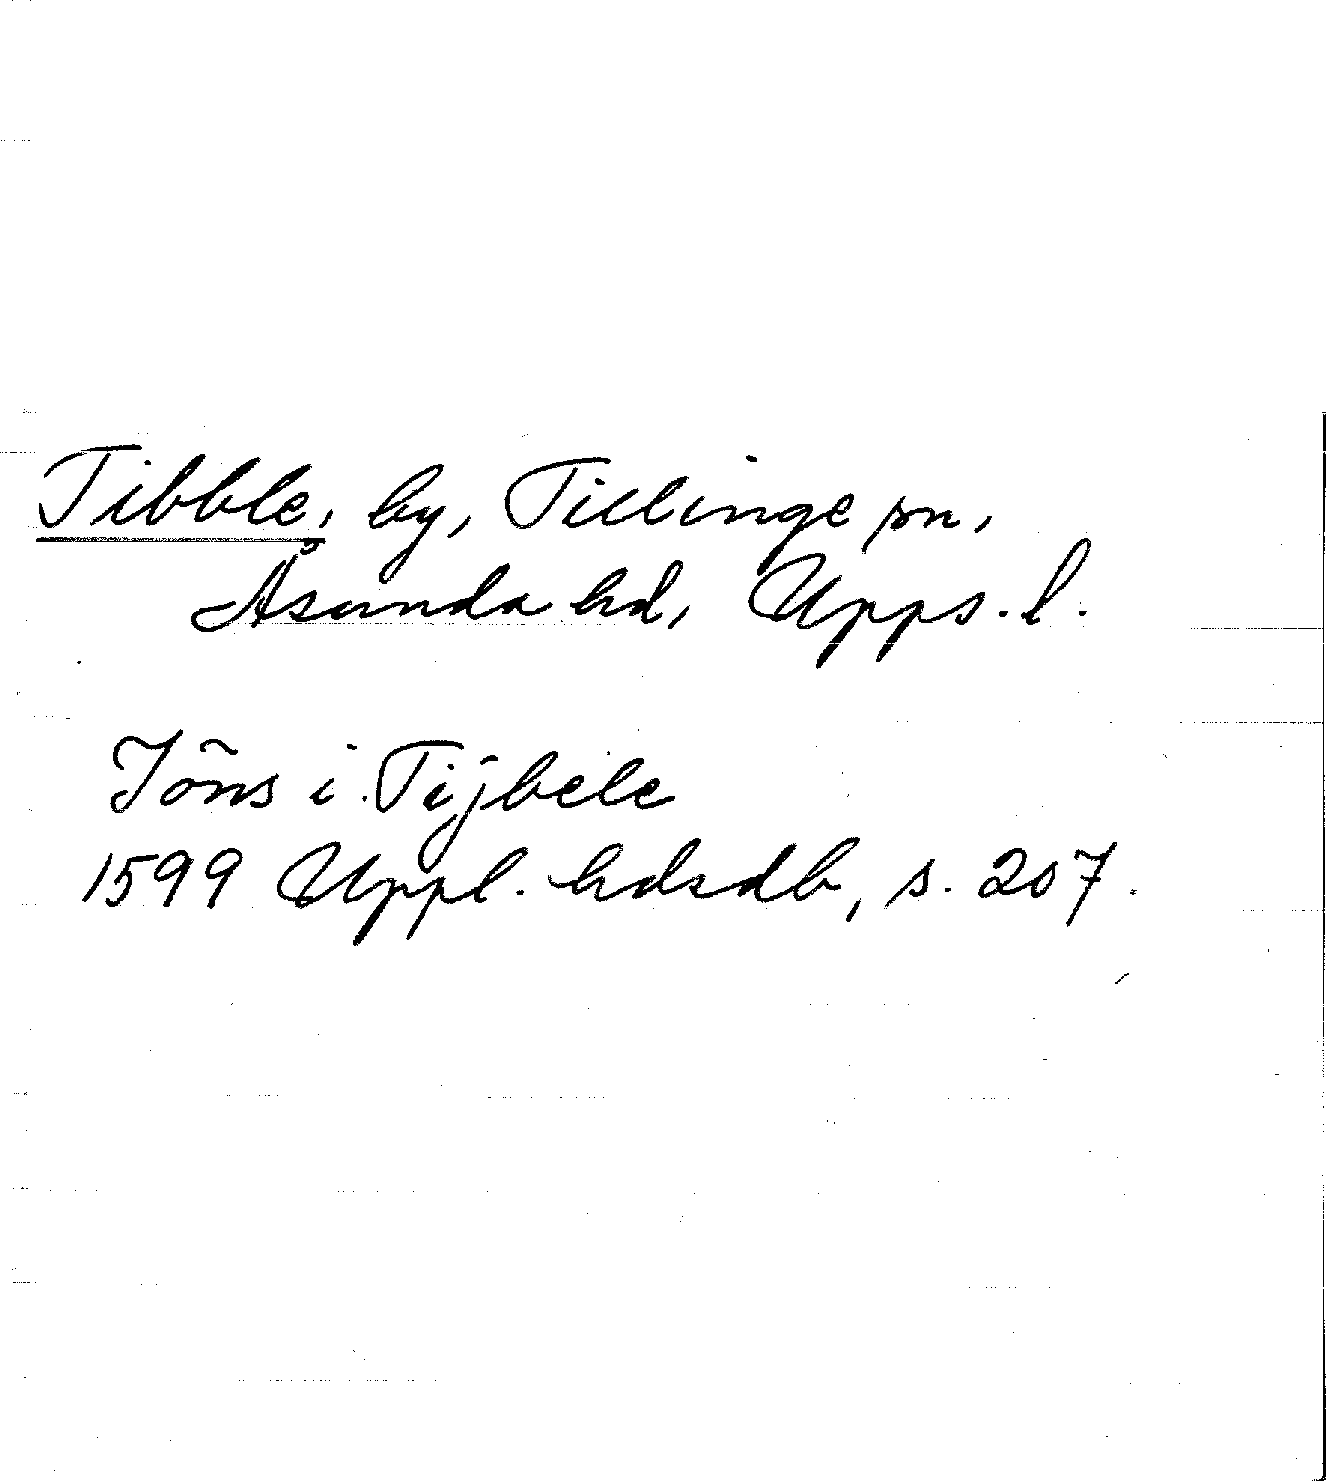 Tibble, by, Tillinge sn,
Åsunda hd, Upps. l.
Jöns i Tijbele
1599 Uppl. hdsdb, s. 207.